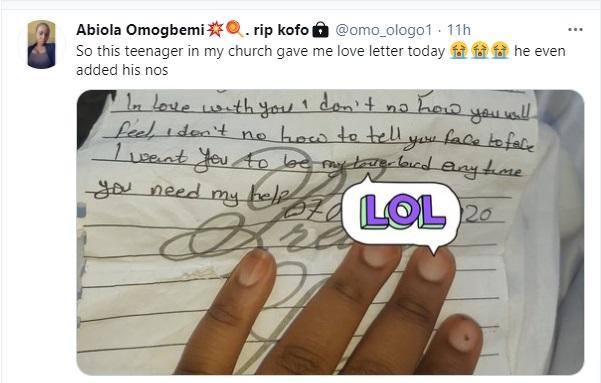 Abiola Omogbemi💥🍭. rip kofo🔒 @omo_ologo1 · 11h
So this teenager in my church gave me love letter today 😭😭😭 he even
added his nos
In love with you I don't no how you will
feel, i don't no how to tell you face to face
I want you to be my loverbird any time
you need my help
070 LOL 20